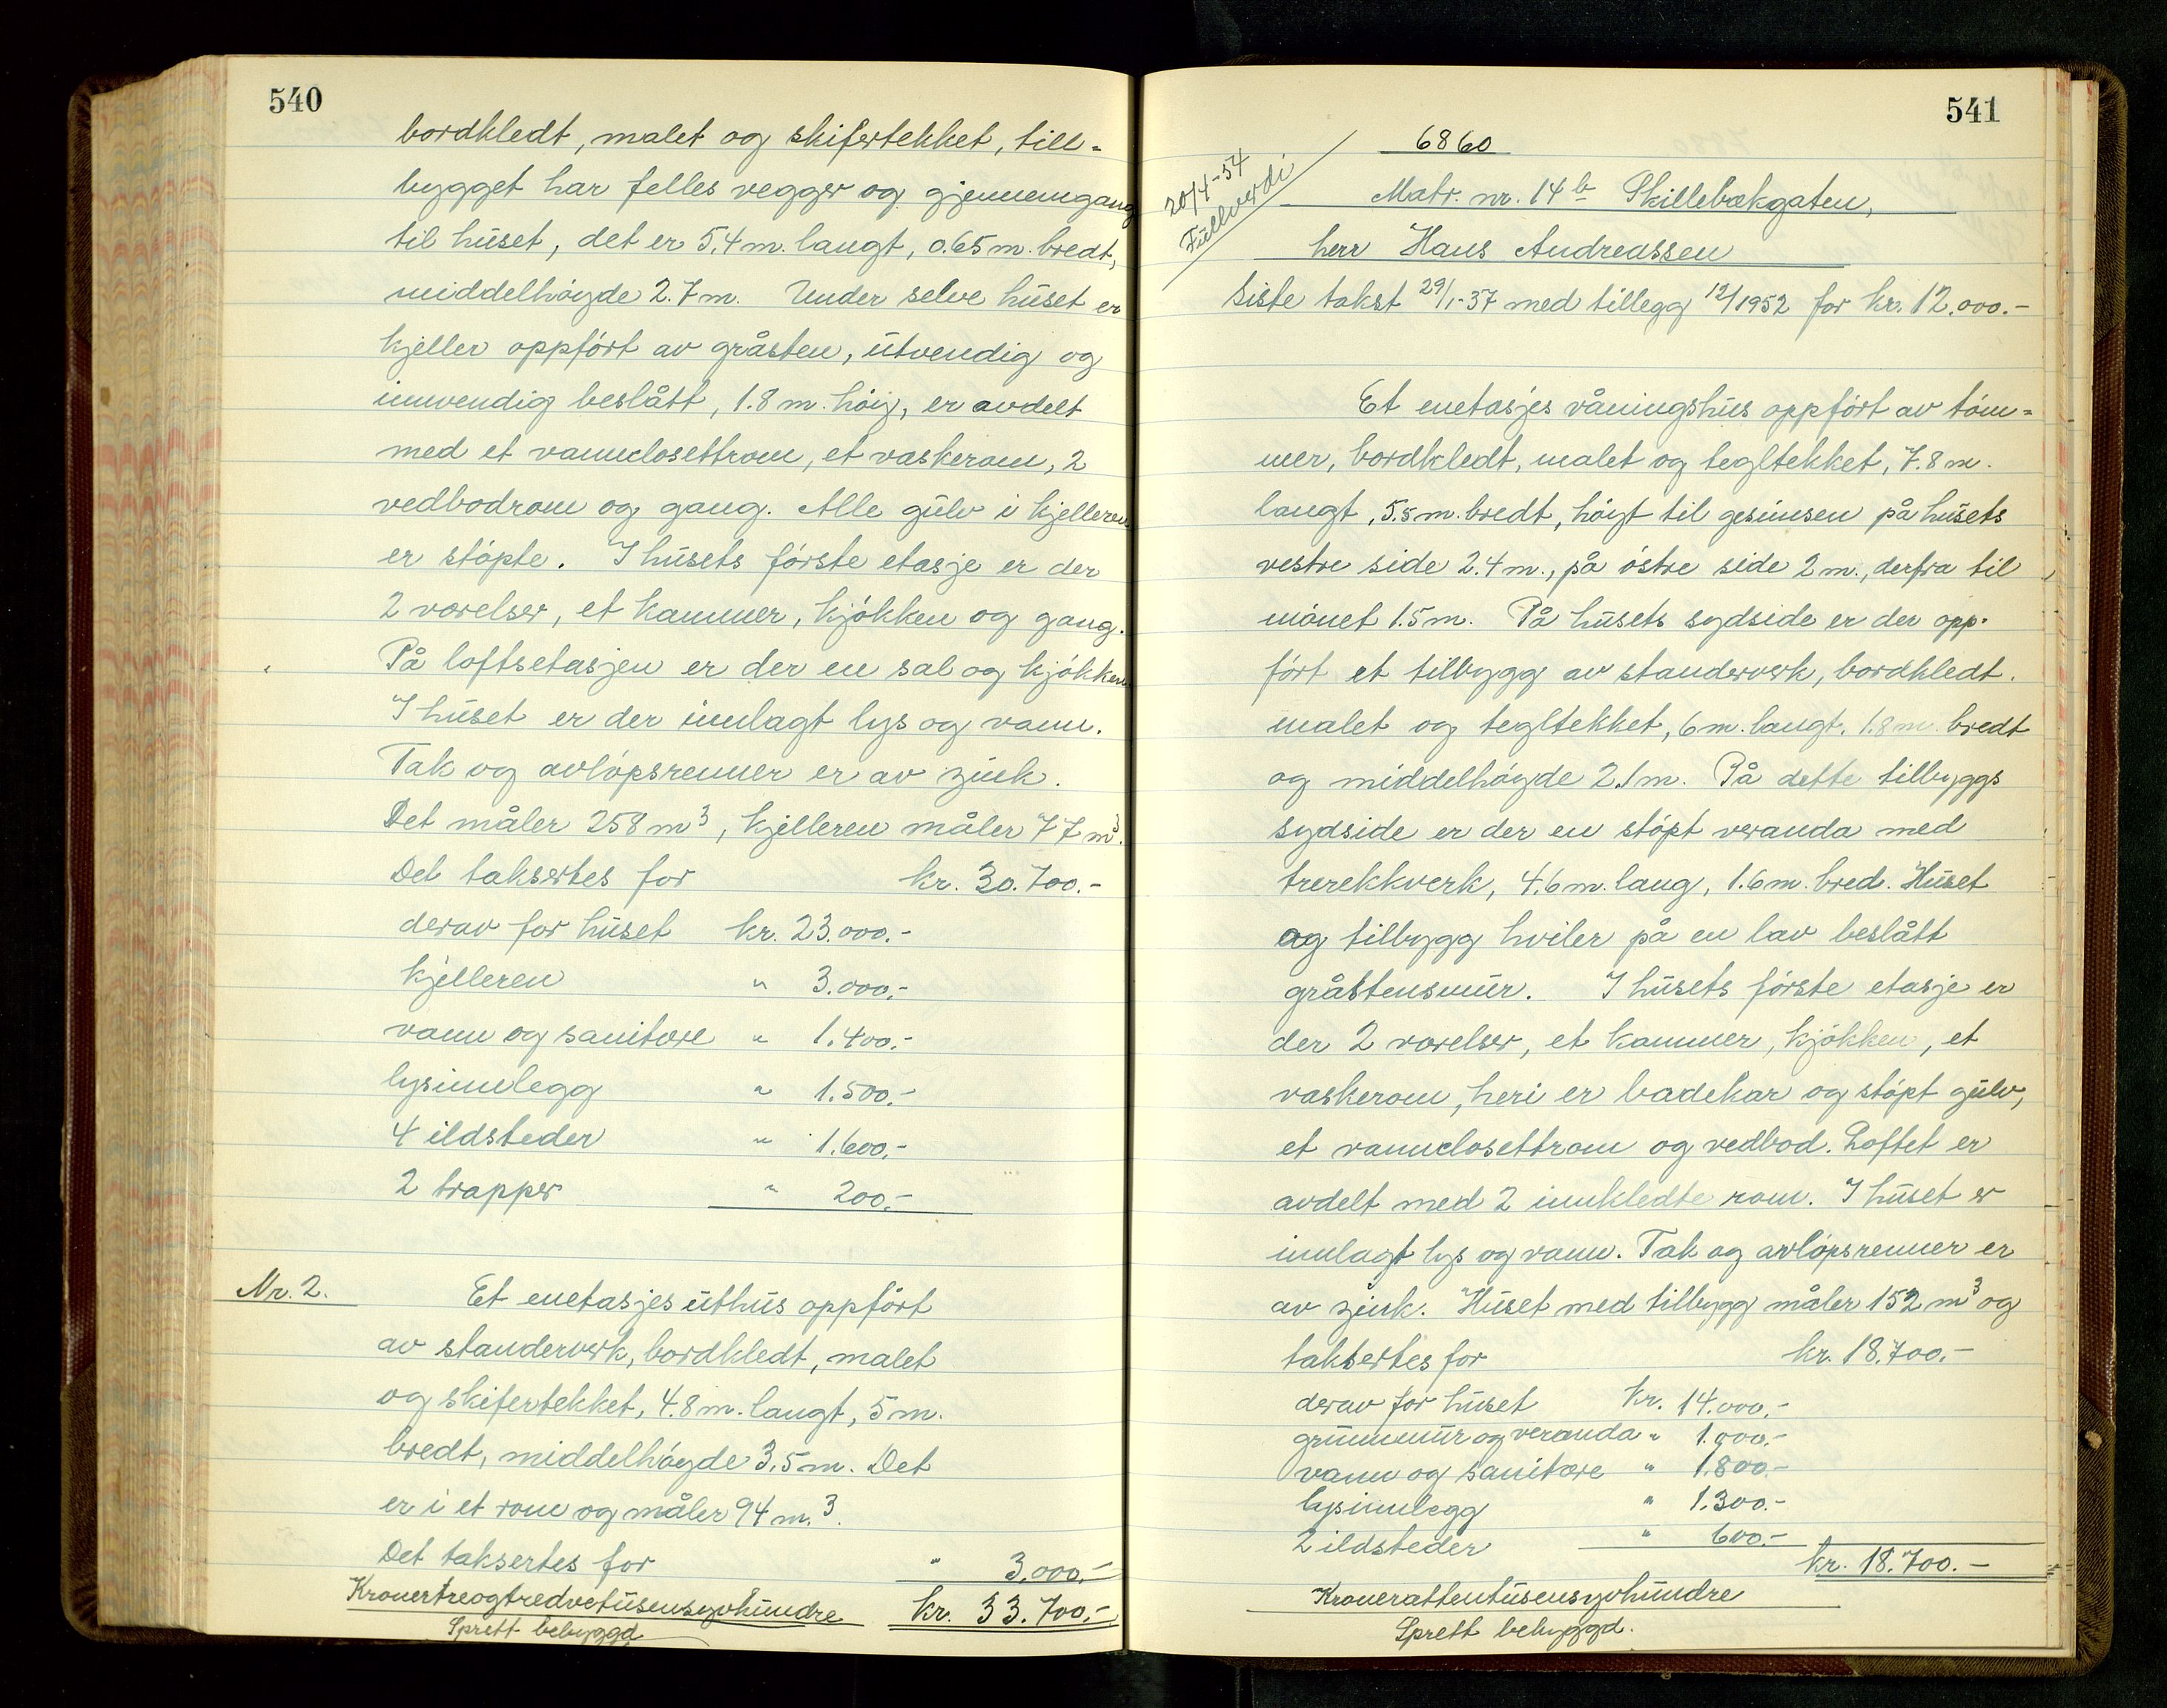 540
bordkledt, malet og skifertekket, till-
bygget har felles vegger og gjennemgang
til huset, det er 5,4 m. langt, 0.65 m. bredt,
middelhöyde 2.7 m. Under selve huset er
kjeller oppfört av gråsten, utvendig og
innvendig beslått, 1.8 m. höig, er avdelt
med et vannclosettrom, et vaskerom, 2
vedbodrom og gang. Alle gulv i kjelleren
er stöpte. I husets förste etasje er der
2 værelser, et kammer, kjökken og gang.
På loftsetasjen er der en sal og kjökken
I huset er der innlagt lys og vann.
Tak og avlöpsrenner er av zink.
Det måler 258 m3, kjelleren måler 77 m3.
Det taksertes for kr. 30.700.-
derav for huset kr. 23.000.-
kjelleren " 3.000.-
vann og sanitære " 1.400.-
lysinnlegg " 1.500.-
4 ildsteder " 1.600.-
2 trapper " 200.-
Nr. 2. Et enetasjes uthus oppfört
av standerverk, bordkledt, malet
og skifertekket, 4.8 m. langt, 5 m.
bredt, middelhöyde 3,5 m. Det
er i et rom og måler 94 m.3.
Det taksertes for " 3.000.-
Kronertreogtredvetusensyvhundre kr. 33.700.-
Sprett bebyggd
541
6860
20/4-54
Fullverdi
Matr. nr. 14 b Skillebækgaten,
herr Hans Andreassen
Siste takst 29/1-37 med tillegg 12/1952 for kr. 12.000.-
Et enetasjes våningshus oppfört av töm-
mer, bordkledt, malet og tegltekket, 7.8 m.
langt, 5.5 m. bredt, höigt til gesimsen på husets
vestre side 2.4 m., på östre side 2 m., derfra til
mönet 1.5 m. På husets sydside er der opp-
fört et tilbygg av standerverk, bordkledt.
malet og tegltekket, 6 m. langt, 1.8 m. bredt
og middelhöyde 2.1 m. På dette tilbyggs
sydside er der en stöpt veranda med
trerekkverk, 4.6 m. lang, 1.6 m. bred. Huset
og tilbygg hviler på en lav beslått
gråstensmur. I husets förste etasje er
der 2 værelser, et kammer, kjökken, et
vaskerom, heri er badekar og stöpt gulv,
et vannclosettrom og vedbod. Loftet er
avdelt med 2 innkledte rom. I huset er
innlagt lys og vann. Tak og avlöpsrenner er
av zink. Huset med tilbygg måler 152 m3 og
taksertes for kr. 18.700.-
derav for huset kr. 14.000.-
grunnmur og veranda " 1.000.-
vann og sanitære " 1.800.-
lysinnlegg " 1.300.-
2 ildsteder " 600.-
kr. 18.700.-
Kroneratten­tusensyvhundre
Sprett bebyggd.